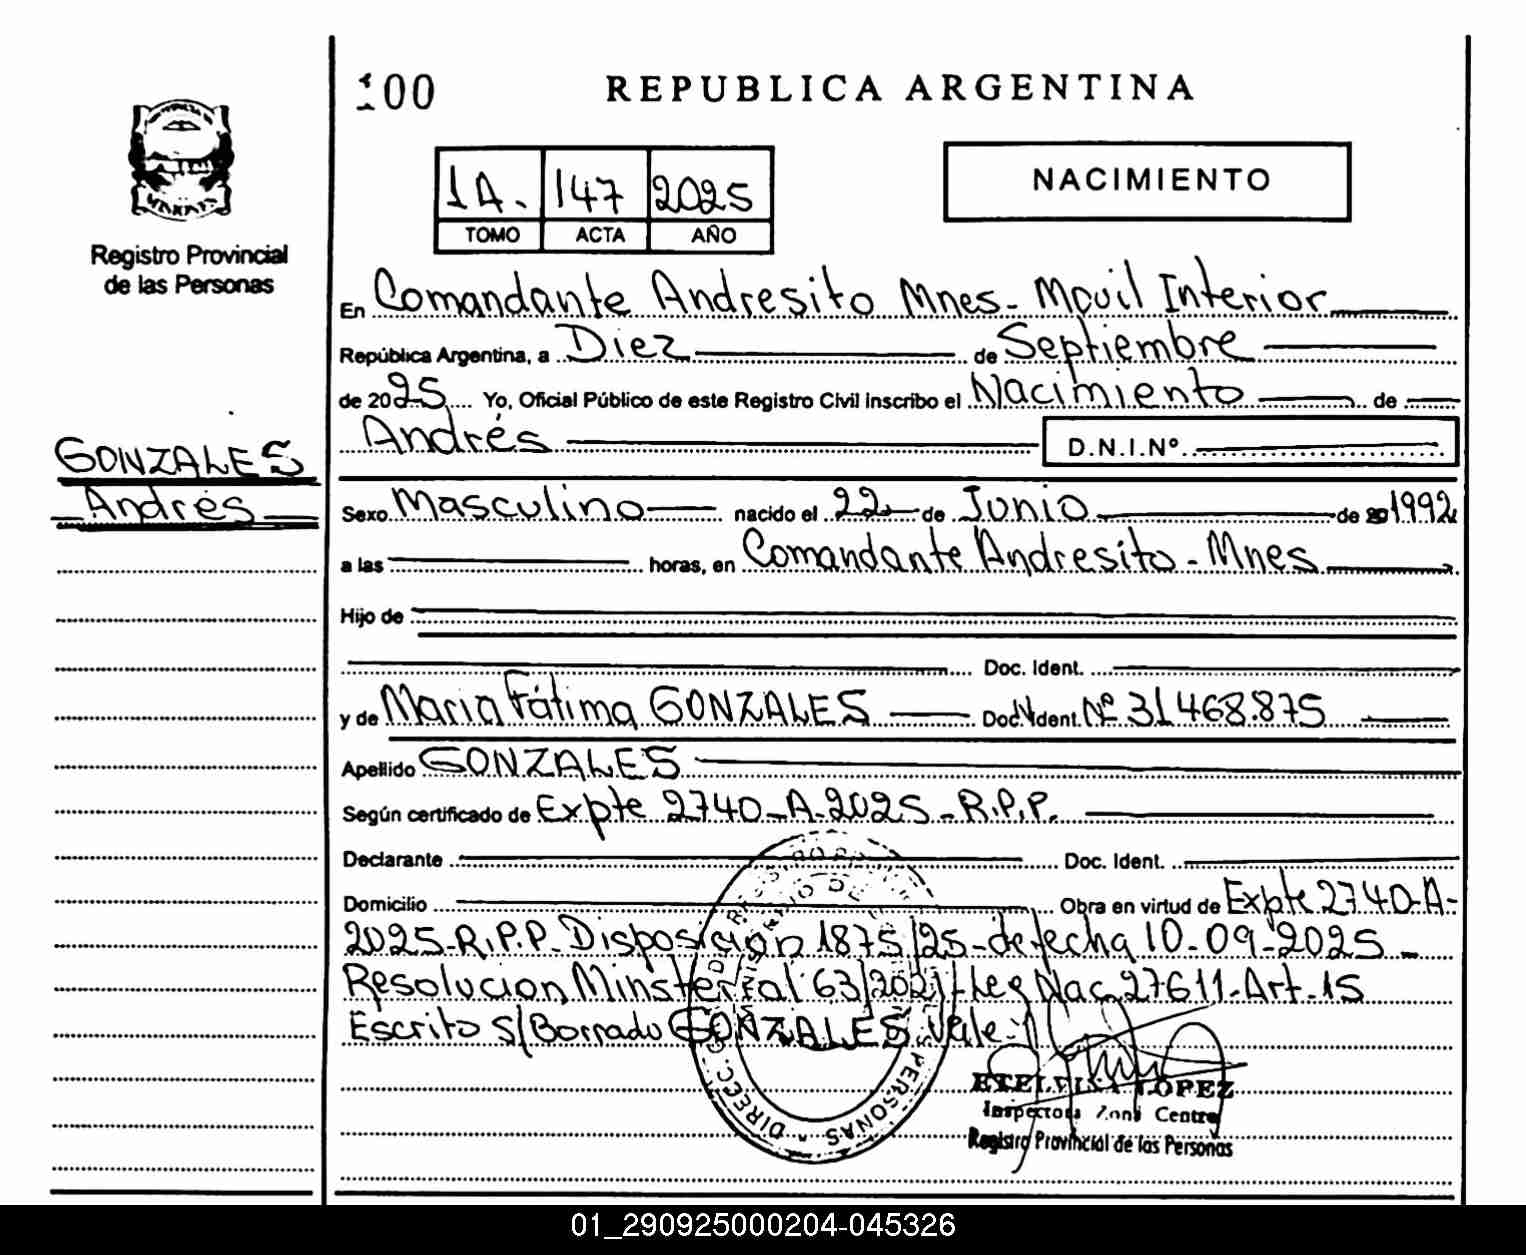 100
REPUBLICA ARGENTINA
NACIMIENTO
1A. 147 2025
TOMO ACTA AÑO
Registro Provincial
de las Personas
En Comandante Andresito Mnes- Movil Interior
República Argentina, a Diez de Septiembre
de 2025 Yo, Oficial Público de este Registro Civil inscribo el Nacimiento de
Andrés D.N.I.Nº
GONZALES
Andrés
Sexo Masculino nacido el 22 de Junio de 1992
a las horas, en Comandante Andresito - Mnes
Hijo de
Doc. Ident.
y de Maria Fátima GONZALES Doc. Ident. Nº 31468.875
Apellido GONZALES
Según certificado de Expte 2740-A-2025-R.P.P.
Declarante Doc. Ident.
Domicilio Obra en virtud de Expte 2740-A-
2025-R.P.P- Disposicion 1875/25-de fecha 10-09-2025-
Resolucion Minsterial 63/2021-Ley Nac 27611-Art-15
Escrito s/Borrado GONZALES Vale-
ETELVINA LOPEZ
Inspectora Zona Centro
Registro Provincial de las Personas
01_290925000204-045326